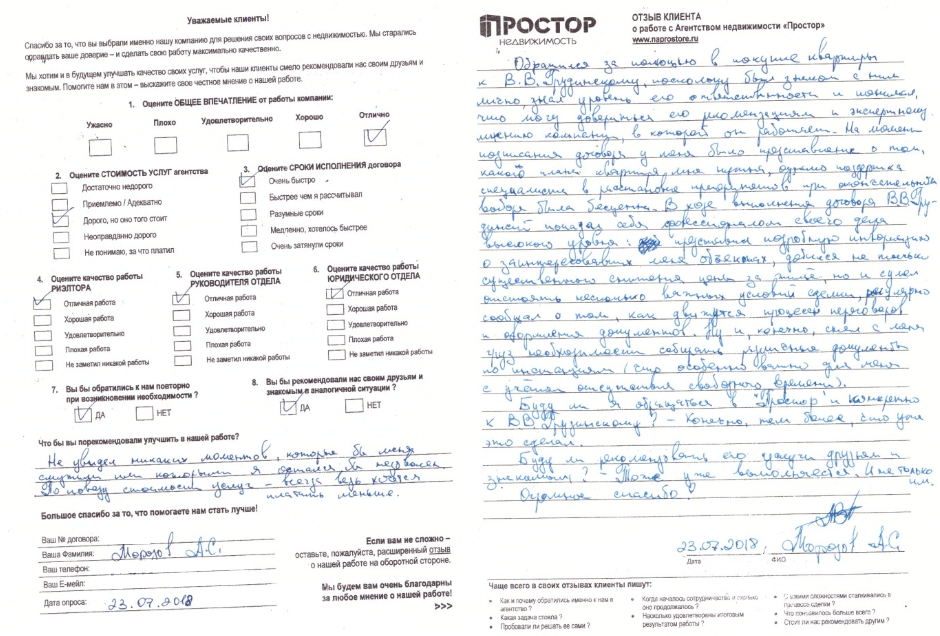 Уважаемые клиенты!
Спасибо за то, что вы выбрали именно нашу компанию для решения своих вопросов с недвижимостью. Мы старались
оправдать ваше доверие – и сделать свою работу максимально качественно.
Мы хотим и в будущем улучшать качество своих услуг, чтобы наши клиенты смело рекомендовали нас своим друзьям и
знакомым. Помогите нам в этом – выскажите свое честное мнение о нашей работе.
1. Оцените ОБЩЕЕ ВПЕЧАТЛЕНИЕ от работы компании:
Ужасно Плохо Удовлетворительно Хорошо Отлично
2. Оцените СТОИМОСТЬ УСЛУГ агентства
Достаточно недорого
Приемлемо / Адекватно
Дорого, но оно того стоит
Неоправданно дорого
Не понимаю, за что платил
3. Оцените СРОКИ ИСПОЛНЕНИЯ договора
Очень быстро
Быстрее чем я рассчитывал
Разумные сроки
Медленно, хотелось быстрее
Очень затянули сроки
4. Оцените качество работы
РИЭЛТОРА
Отличная работа
Хорошая работа
Удовлетворительно
Плохая работа
Не заметил никакой работы
5. Оцените качество работы
РУКОВОДИТЕЛЯ ОТДЕЛА
Отличная работа
Хорошая работа
Удовлетворительно
Плохая работа
Не заметил никакой работы
6. Оцените качество работы
ЮРИДИЧЕСКОГО ОТДЕЛА
Отличная работа
Хорошая работа
Удовлетворительно
Плохая работа
Не заметил никакой работы
7. Вы бы обратились к нам повторно
при возникновении необходимости ?
ДА НЕТ
8. Вы бы рекомендовали нас своим друзьям и
знакомым в аналогичной ситуации ?
ДА НЕТ
Что бы вы порекомендовали улучшить в нашей работе?
Не увидел никаких моментов, которые бы меня
смутили или которыми я остался бы недоволен
По поводу стоимости услуг - всегда ведь хочется
платить меньше.
Большое спасибо за то, что помогаете нам стать лучше!
Ваш № договора:
Ваша Фамилия: Морозов А.С.
Ваш телефон:
Ваш Е-мейл:
Дата опроса: 23.07.2018
Если вам не сложно –
оставьте, пожалуйста, расширенный отзыв
о нашей работе на оборотной стороне.
Мы будем вам очень благодарны
за любое мнение о нашей работе!
>>>
ПРОСТОР
НЕДВИЖИМОСТЬ
ОТЗЫВ КЛИЕНТА
о работе с Агентством недвижимости «Простор»
www.naprostore.ru
Обратился за помощью в покупке квартиры
к В.В. Грудинскому, поскольку был знаком с ним
лично, знал уровень его ответственности и понимал,
что могу довериться его рекомендациям и экспертному
мнению компании, в которой он работает. На момент
подписания договора у меня было представление о том,
какого плана квартира мне нужна, однако поддержка
специалиста в расстановке приоритетов при окончательном
выборе была бесценна. В ходе выполнения договора В.В. Гру-
динский показал себя профессионалом своего дела
высокого уровня: представил подробную информацию
о заинтересовавших меня объектах, добился не только
существенного снижения цены за жильё, но и сумел
отстоять несколько важных условий сделки, регулярно
сообщал о том, как движутся процесс переговоров
и оформления документов. Ну и, конечно, снял с меня
груз необходимости собирать различные документы
по инстанциям (что особенно важно для меня
с учётом отсутствия свободного времени).
Буду ли я обращаться в "Простор" и конкретно
к В.В. Грудинскому? - Конечно, тем более, что уже
это сделал.
Буду ли рекомендовать его услуги друзьям и
знакомым? - Тоже уже выполняется. И не только
им.
Огромное спасибо!
23.07.2018 Морозов А.С.
Дата ФИО
Чаще всего в своих отзывах клиенты пишут:
• Как и почему обратились именно к нам в
агентство ?
• Какая задача стояла ?
• Пробовали ли решать ее сами ?
• Когда началось сотрудничество и сколько
оно продолжалось ?
• Насколько удовлетворены итоговым
результатом работы ?
• С какими сложностями сталкивались в
процессе сделки ?
• Что понравилось больше всего ?
• Стоит ли нас рекомендовать другим ?